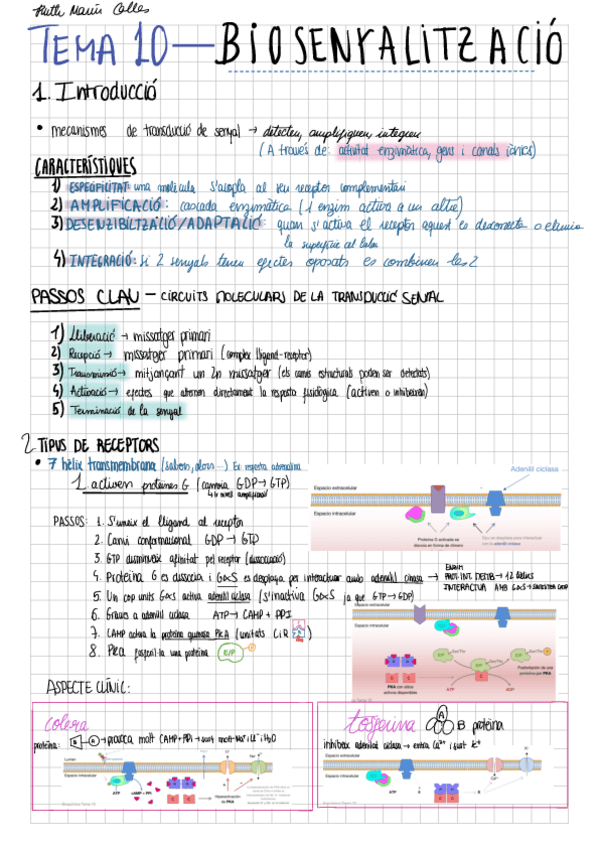 Ruth Marín
TEMA 10 — BIOSENYALITZACIÓ
1. Introducció
• mecanismes de transducció de senyal → detecten, amplifiquen, integren
(A través de: activitat enzimàtica, gens i canals iònics)
CARACTERÍSTIQUES
1) ESPECIFICITAT: una molècula s'acopla al seu receptor complementari
2) AMPLIFICACIÓ: cascada enzimàtica (1 enzim activa a un altre)
3) DESENZIBILTZACIÓ/ADAPTACIÓ: quan s'activa el receptor aquest es desconecta o elimina
la superfície cel·lular
4) INTEGRACIÓ: si 2 senyals tenen efectes oposats es combinen les 2
PASSOS CLAU – CIRCUITS MOLECULARS DE LA TRANSDUCCIÓ SENYAL
1) Lliberació → missatger primari
2) Recepció → missatger primari (complex lligand-receptor)
3) Transmissió → mitjançant un 2n missatger (els canvis estructurals poden ser detectats)
4) Activació → efectes que alteren directament la resposta fisiològica (activen o inhibeixen)
5) Terminació de la senyal
2. TIPUS DE RECEPTORS
• 7 hèlix transmembrana (sabors, olors...) Ex: resposta adrenalina
1. activen proteïnes G (canvia GDP → GTP)
Adenilil ciclasa
Espacio extracelular
Espacio intracelular
Proteína G activada se disocia en forma de dímero
PASSOS: 1. S'uneix el lligand al receptor
2. Canvi conformacional GDP → GTP
3. GTP disminueix afinitat pel receptor (dissociació)
4. Proteïna G es dissocia i GαS es desplaça per interactuar amb adenilil ciclasa →
ENZIM
PROT. INT. MEMB → 12 hèlixs
INTERACTUA AMB GαS →
5. Un cop units GαS activa adenilil ciclasa (s'inactiva GαS ja que GTP → GDP)
6. Gràcies a adenilil ciclasa ATP → CAMP + PPI
7. CAMP activa la proteïna quinasa PKA (unitats C i R)
8. PKA fosforila una proteïna
Espacio extracelular
Espacio intracelular
PKA con sitios activos disponibles
ATP
ADP
Fosforilación de una proteína por PKA
ASPECTE CLÍNIC:
còlera
proteïna: B - A → provoca molt CAMP + PPi → surt molt Na⁺ i Cl⁻ i H₂O
Lumen
Espacio intracelular
ATP
cAMP + PPi
Hiperactivación de PKA
tosferina
A B proteïna
inhibeix adenilat ciclasa → entra Ca²⁺ i surt K⁺
Espacio extracelular
Espacio intracelular
ATP